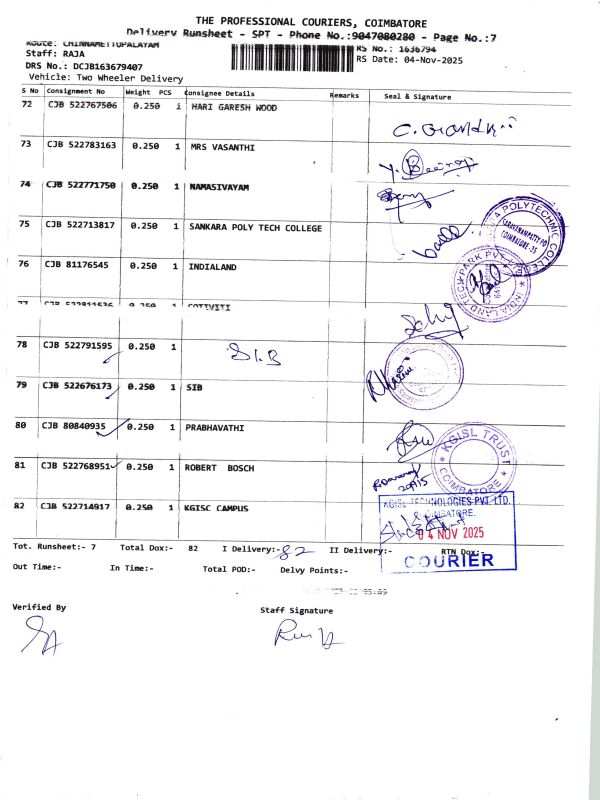 THE PROFESSIONAL COURIERS, COIMBATORE
Delivery Runsheet - SPT - Phone No.:9047080280 - Page No.:7
Route: CHINNAMETTUPALAYAM
Staff: RAJA
DRS No.: DCJB163679407
Vehicle: Two Wheeler Delivery
RS No.: 1636794
RS Date: 04-Nov-2025
S No Consignment No Weight PCS Consignee Details Remarks Seal & Signature
72 CJB 522767506 0.250 1 HARI GARESH WOOD
73 CJB 522783163 0.250 1 MRS VASANTHI
74 CJB 522771750 0.250 1 NAMASIVAYAM
75 CJB 522713817 0.250 1 SANKARA POLY TECH COLLEGE
76 CJB 81176545 0.250 1 INDIALAND
77 CJB 522811536 0.250 1 COTIVITI
78 CJB 522791595 0.250 1 SIB
79 CJB 522676173 0.250 1 SIB
80 CJB 80840935 0.250 1 PRABHAVATHI
81 CJB 522768951 0.250 1 ROBERT BOSCH
82 CJB 522714917 0.250 1 KGISC CAMPUS
POLYTECHNIC COLLEGE
SARAVANAMPATTY PO
COIMBATORE-35
INDIA LAND TECH PARK PVT.
KGISL TRUST
COIMBATORE
KGISL TECHNOLOGIES PVT. LTD.
COIMBATORE.
04 NOV 2025
COURIER
Tot. Runsheet:- 7 Total Dox:- 82 I Delivery:- 82 II Delivery:- RTN Dox:-
Out Time:- In Time:- Total POD:- Delvy Points:-
Verified By
Staff Signature